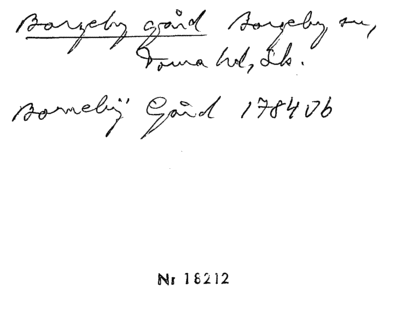 Borgeby gård Borgeby sn,
Torna hd, Sk.
Borneby Gård 1784 Ob
Nr 18212